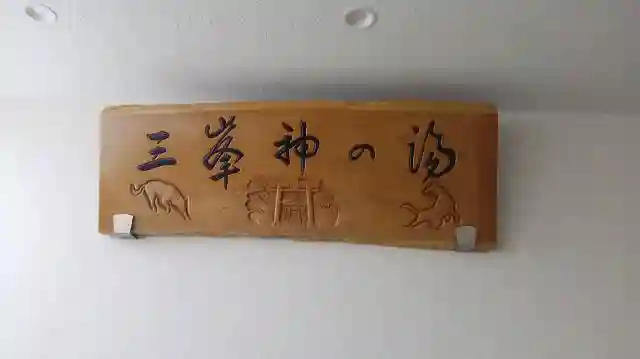 三峯神の湯